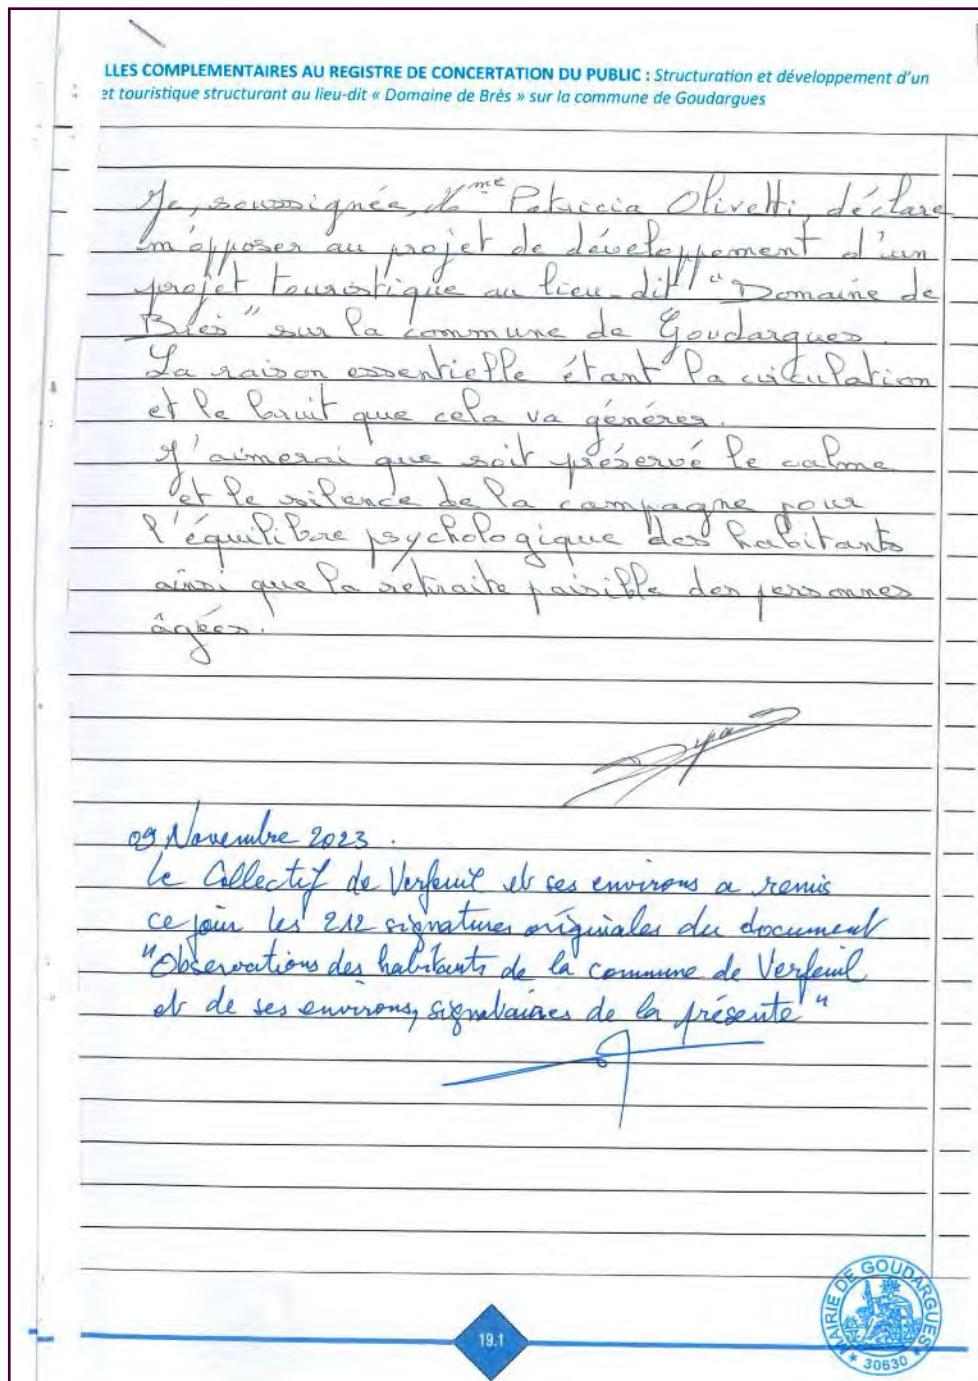 LLES COMPLEMENTAIRES AU REGISTRE DE CONCERTATION DU PUBLIC : Structuration et développement d'un
et touristique structurant au lieu-dit « Domaine de Brès » sur la commune de Goudargues
Je, soussignée, Mme Patricia Olivetti, déclare
m'opposer au projet de développement d'un
projet touristique au lieu-dit "Domaine de
Brès" sur la commune de Goudargues.
La raison essentielle étant la circulation
et le bruit que cela va générer.
J'aimerai que soit préservé le calme
et le silence de la campagne pour
l'équilibre psychologique des habitants
ainsi que la retraite paisible des personnes
âgées.
09 Novembre 2023.
Le Collectif de Verfeuil et ses environs a remis
ce jour les 212 signatures originales du document
"Observations des habitants de la commune de Verfeuil
et de ses environs, signataires de la présente"
19.1
MAIRIE DE GOUDARGUES
* 30630 *